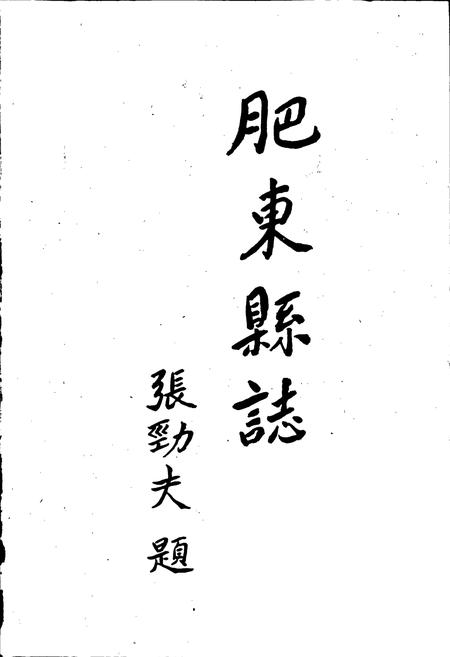 肥東縣誌
張勁夫題